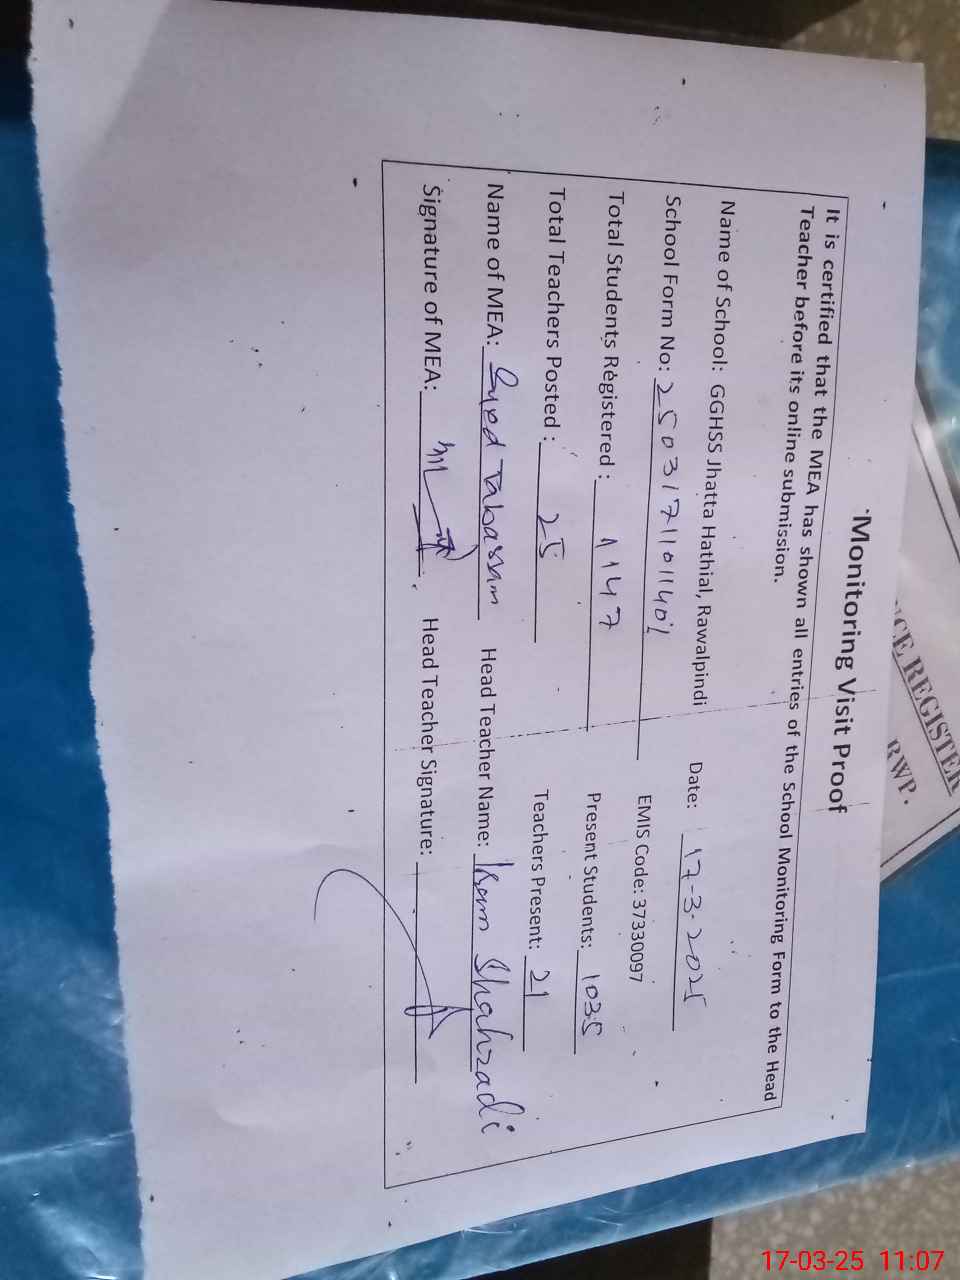 Monitoring Visit Proof
It is certified that the MEA has shown all entries of the School Monitoring Form to the Head
Teacher before its online submission.
Name of School: GGHSS Jhatta Hathial, Rawalpindi Date: 17-3-2025
School Form No: EMIS Code: 37330097
Total Students Registered : 1147 Present Students: 1035
Total Teachers Posted : 25 Teachers Present: 21
Name of MEA: Syed Tabassam Head Teacher Name: Shahzadi
Signature of MEA: Head Teacher Signature:
REGISTER
RWP.
17-03-25 11:07